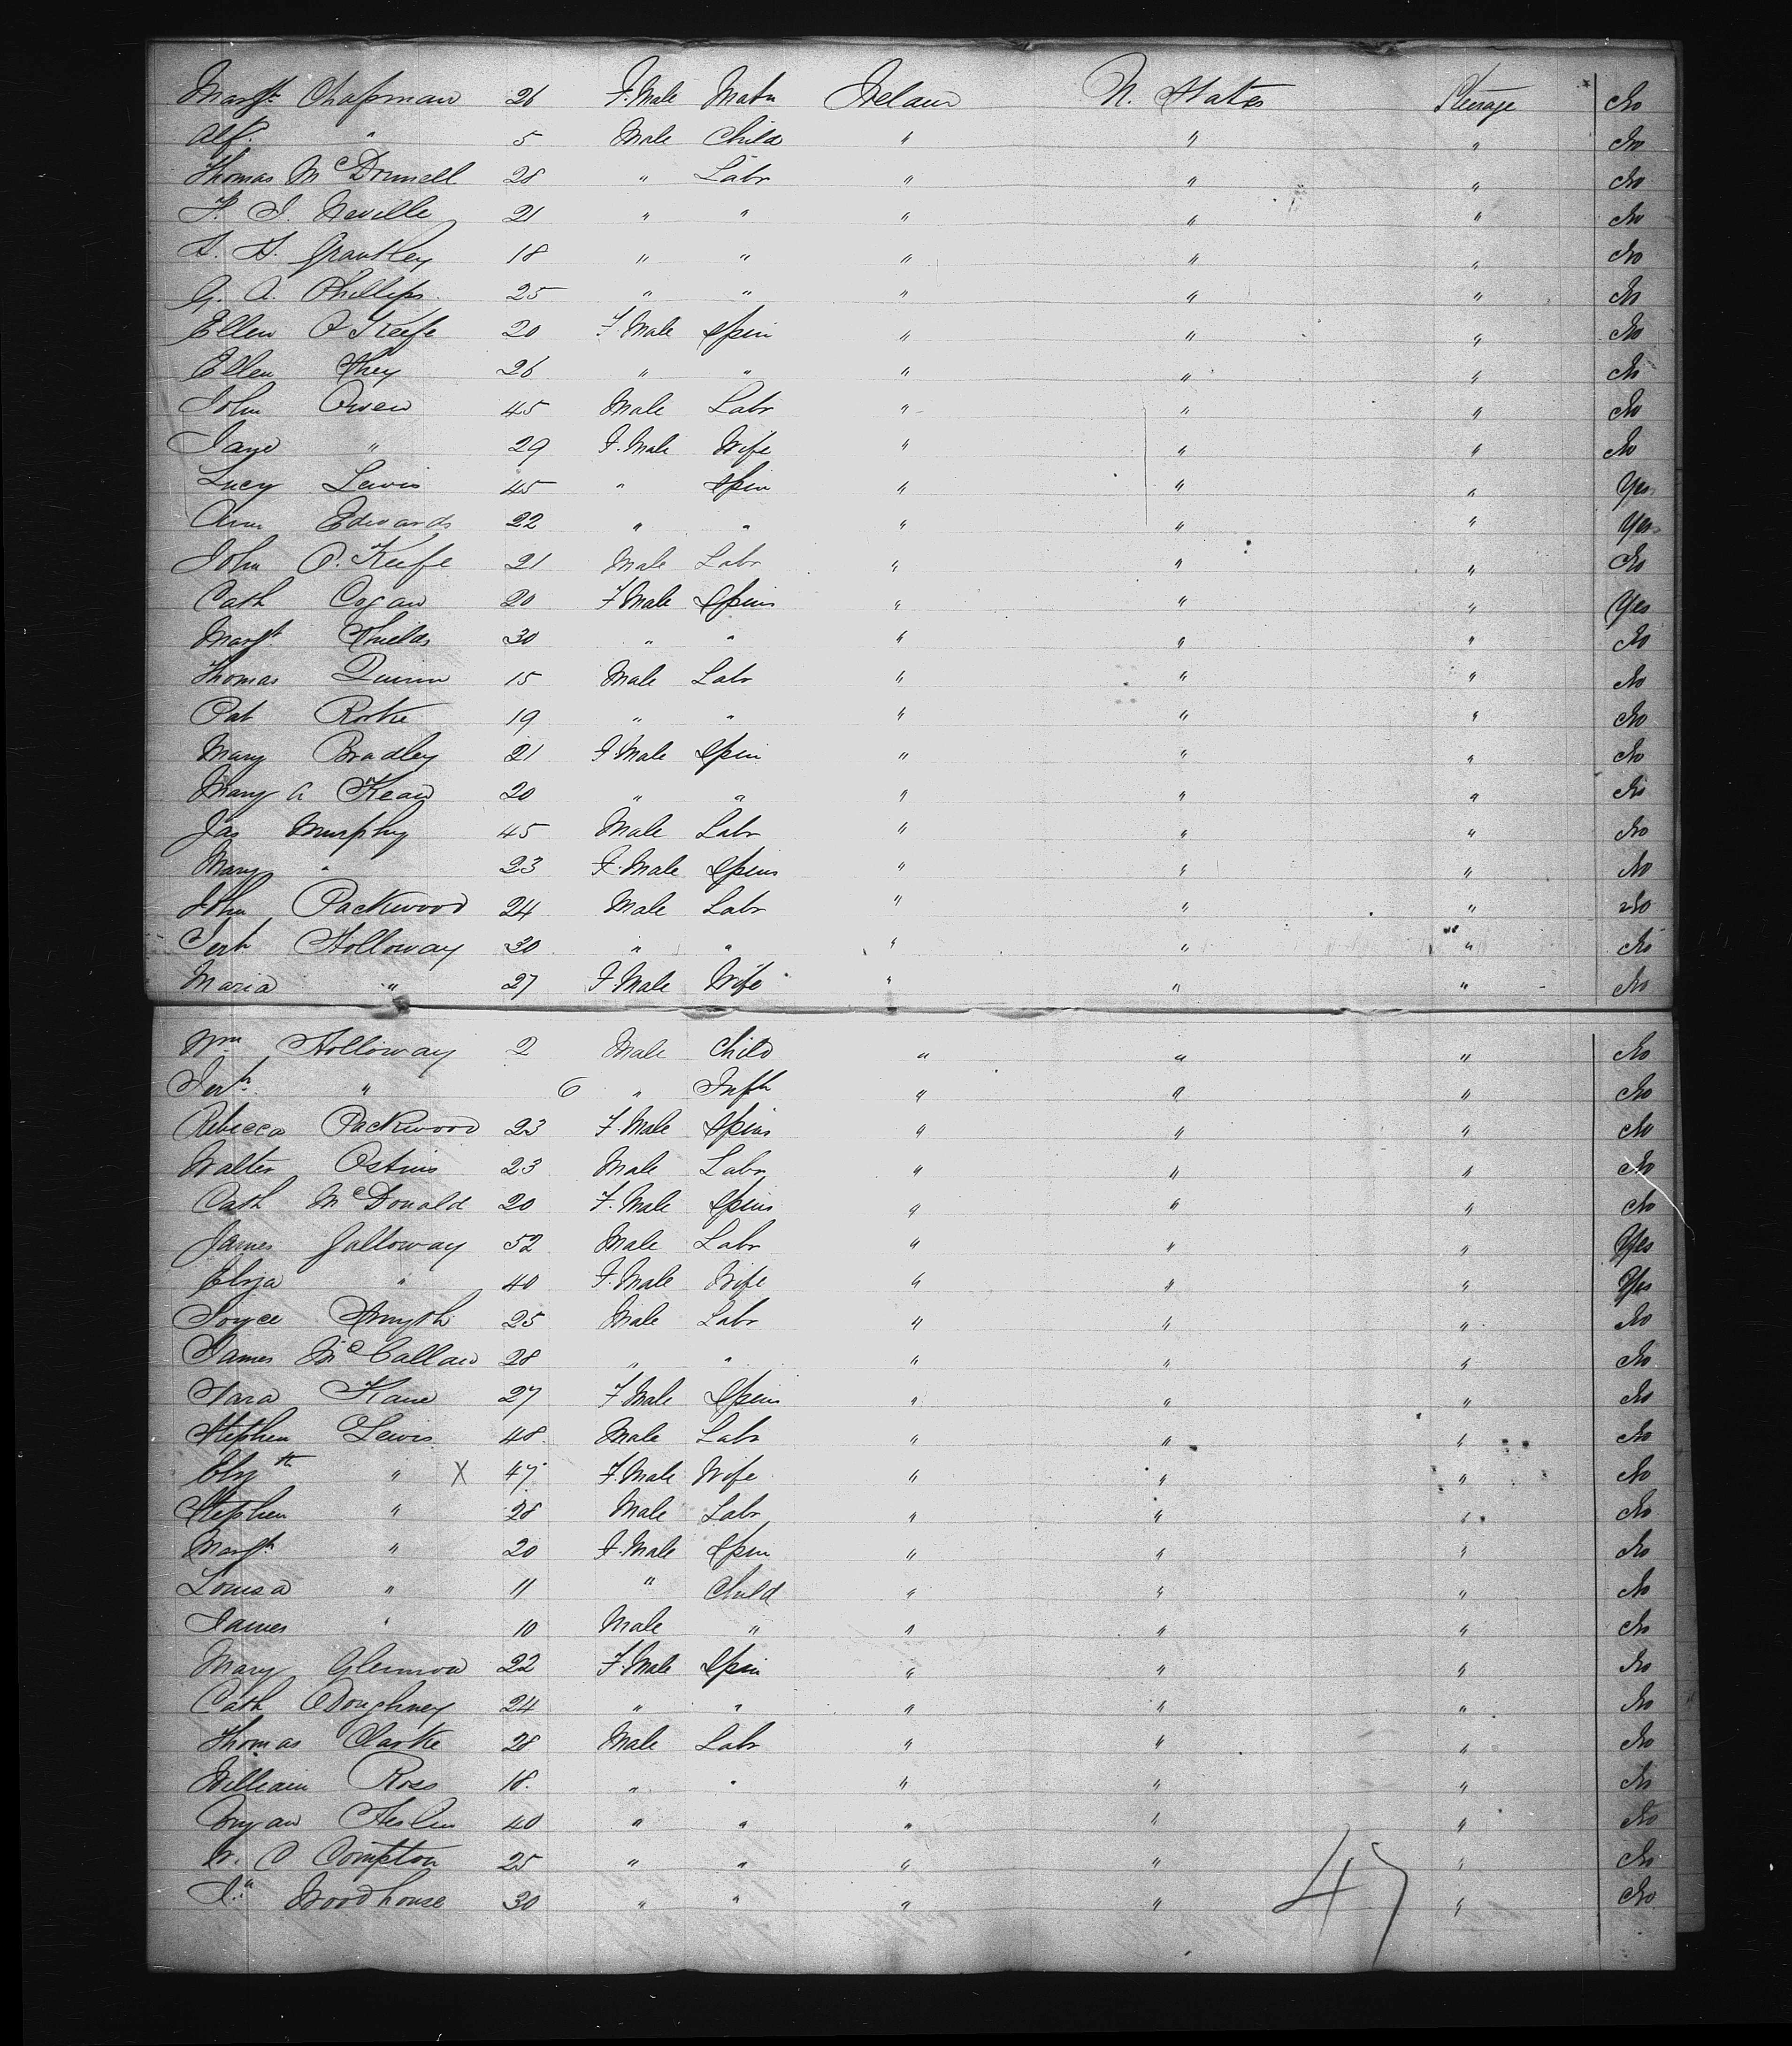 Margt Chapman 26 F. Male Matn Ireland U. States Steerage No
Alf. " 5 Male Child " " " No
Thomas McDonnell 28 " Labr " " " No
Neville 21 " " " " " No
Grantley 18 " " " " " No
G. A. Phillips 25 " " " " " No
Ellen O Keefe 20 F. Male Spin " " " No
Ellen 26 " " " " " No
John Owen 45 Male Labr " " " No
Jane " 29 F. Male Wife " " " No
Lucy Lewis 45 " Spin " " " Yes
Ann Edwards 22 " " " " " Yes
John O. Keefe 21 Male Labr " " " No
Cath Cogan 20 F Male Spins " " " Yes
Margt Shields 30 " " " " " No
Thomas Quinn 15 Male Labr " " " No
Pat Rorke 19 " " " " " No
Mary Bradley 21 F Male Spin " " " No
Mary A Kean 20 " " " " " No
Jas Murphy 45 Male Labr " " " No
Mary " 23 F. Male Spins " " " No
John Packwood 24 Male Labr " " " No
Holloway 30 " " " " " No
Maria " 27 F Male Wife " " " No
Wm Holloway 2 Male Child " " " No
" 6 " Inft " " " No
Rebecca Packwood 23 F. Male Spins " " " No
Walter Ostins 23 Male Labr " " " No
Cath McDonald 20 F. Male Spins " " " No
James Galloway 52 Male Labr " " " Yes
Eliza " 40 F. Male Wife " " " Yes
Joyce Smyth 25 Male Labr " " " No
James McCallan 28 " " " " " No
Sara Kane 27 F Male Spins " " " No
Stephen Lewis 48 Male Labr " " " No
Elizth " X 47 F. Male Wife " " " No
Stephen " 28 Male Labr " " " No
Margt " 20 F. Male Spin " " " No
Louisa " 11 " Child " " " No
James " 10 Male " " " " No
Mary 22 F. Male Spin " " " No
Cath ODoughney 24 " " " " " No
Thomas Clarke 28 Male Labr " " " No
William Ross 18 " " " " " No
Heslin 40 " " " " " No
W. C Compton 25 " " " " " No
Woodhouse 30 " " " " " No
47